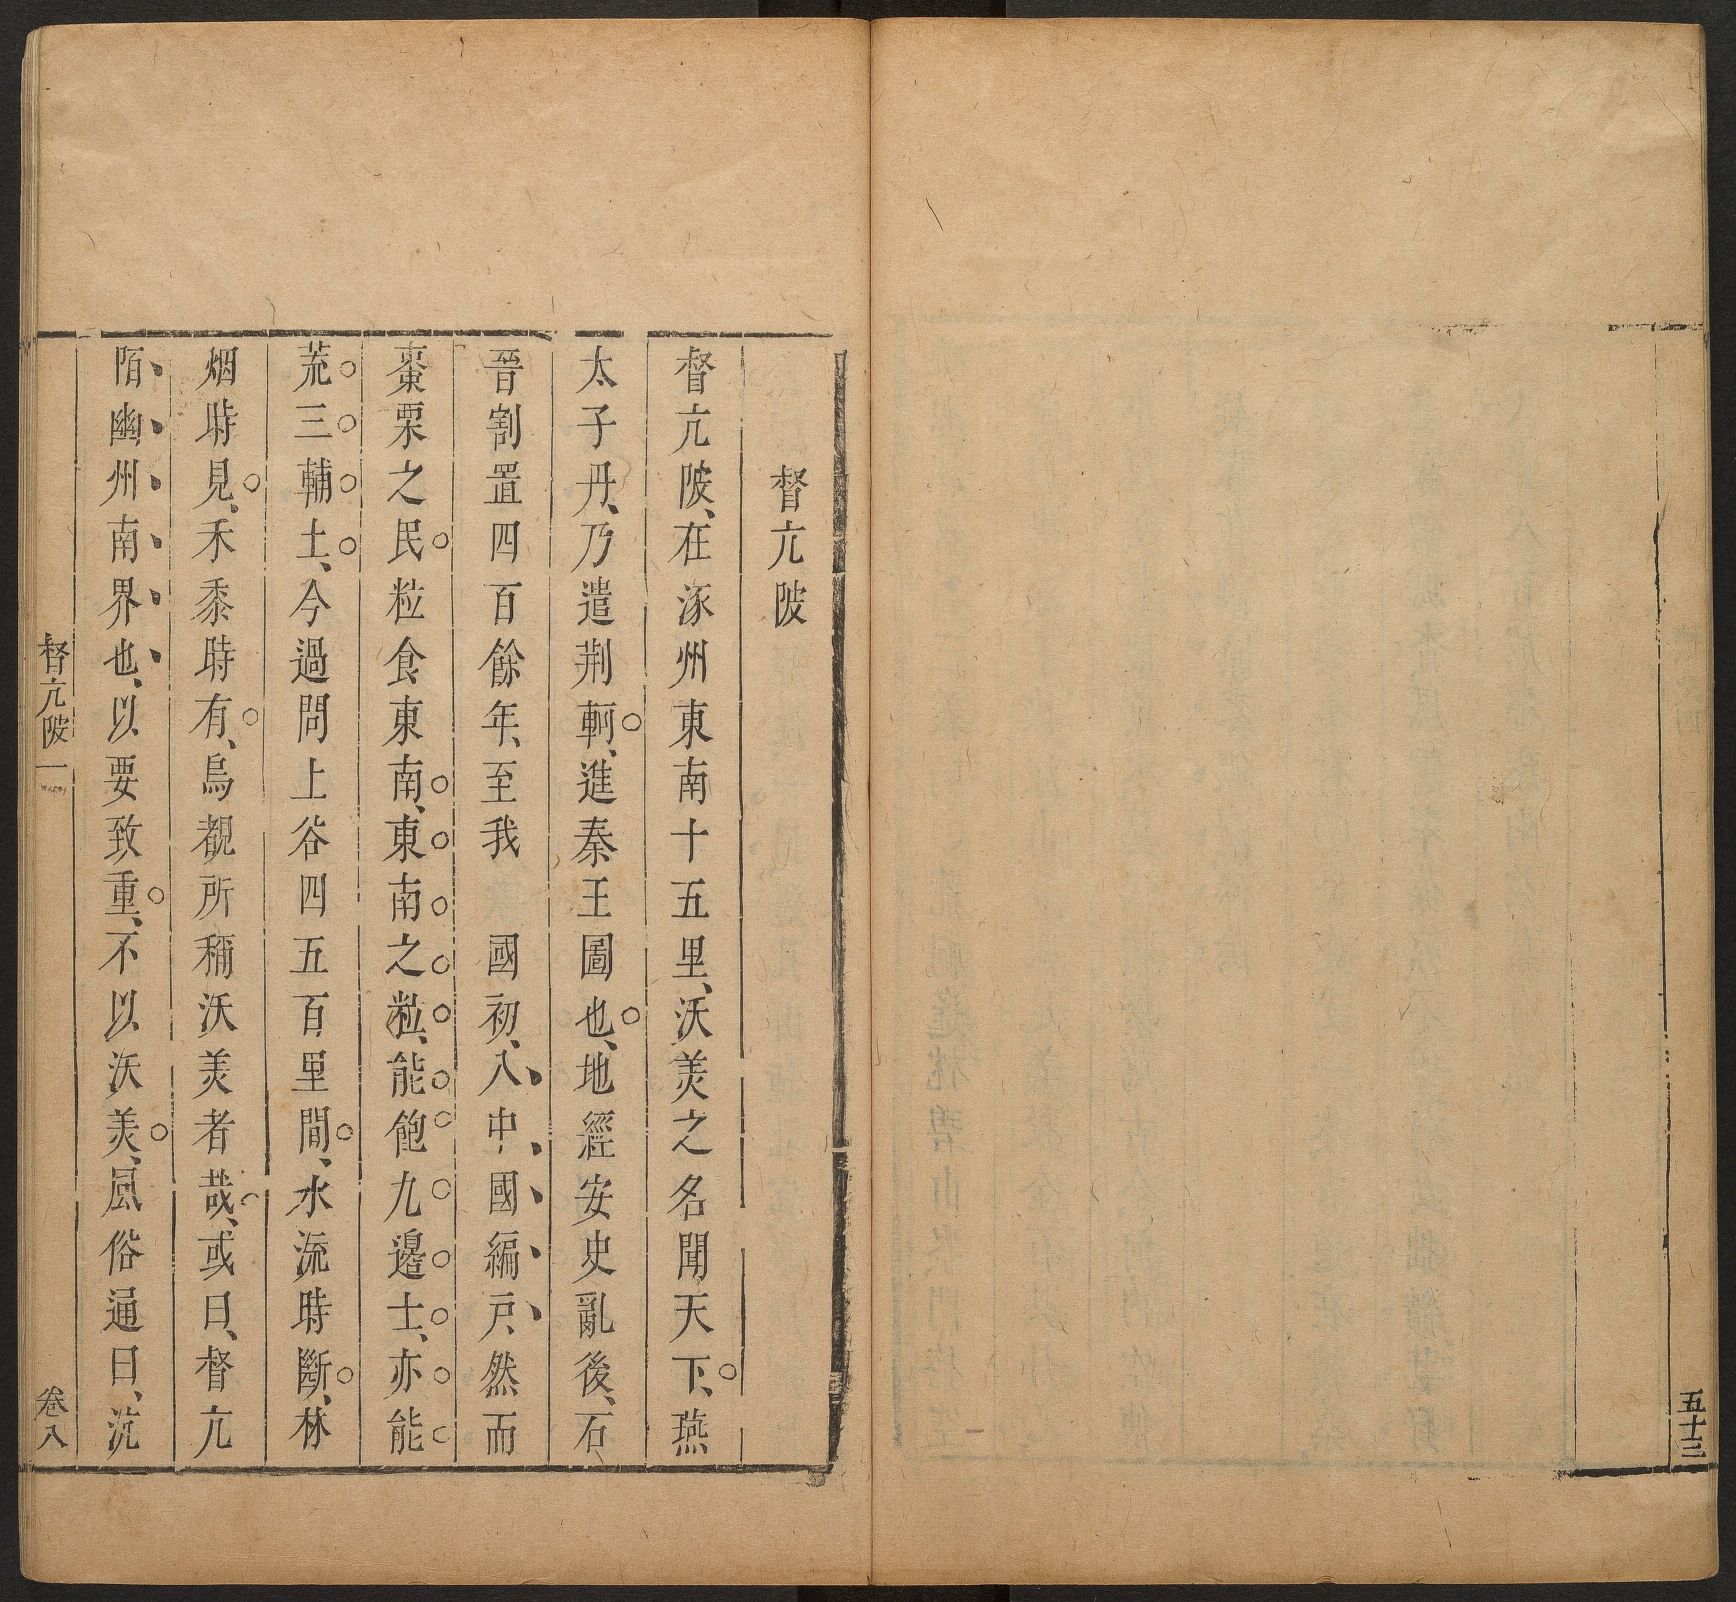 五十三
督亢陂
督亢陂、在涿州東南十五里、沃美之名聞天下、燕
太子丹、乃遣荆軻、進秦王圖也、地經安史亂後、石
晉割置四百餘年、至我　國初、入中國編戶、然而
棗栗之民粒食東南、東南之粒、能飽九邊士、亦能
荒三輔土、今過問上谷四五百里間、水流時斷、林
烟時見、禾黍時有、烏覩所稱沃美者哉、或曰、督亢
陌幽州南界也、以要致重、不以沃美、風俗通曰、沆
督亢陂 一 卷八